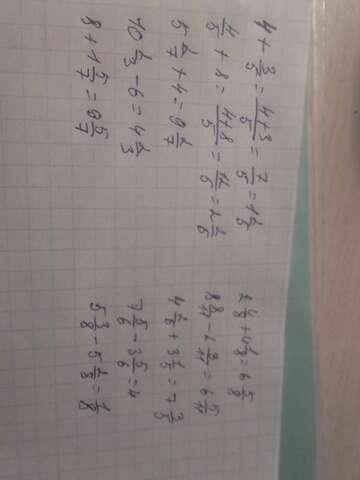 4 + 3/5 = 4+3/5 = 7/5 = 1 2/5
4/5 + 8 = 4+8/5 = 12/5 = 2 2/5
5 2/7 + 4 = 9 2/7
10 2/3 - 6 = 4 2/3
8 + 1 5/7 = 9 5/7
2 4/8 + 4 1/8 = 6 5/8
8 8/11 - 2 3/11 = 6 5/11
4 2/5 + 3 1/5 = 7 3/5
7 5/6 - 3 5/6 = 4
5 3/8 - 5 2/8 = 1/8